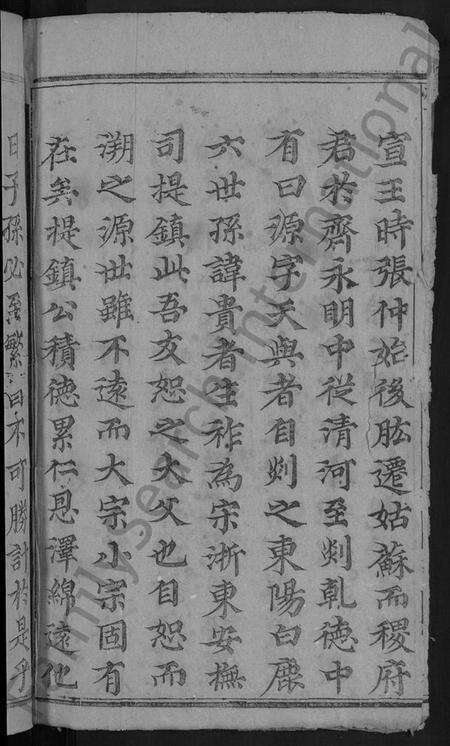 宣王時張仲始後肱遷姑蘇而稷府
君於齊永明中從清河至剡乹德中
有曰源字天與者自剡之東陽白鹿
六世孫諱貴者生祚為宋浙東安撫
司提鎮此吾友恕之大父也自恕而
溯之源世雖不遠而大宗小宗固有
在矣提鎮公積德累仁恩澤綿遠他
日子孫必至繁衍不可勝計於是乎
familysearch international